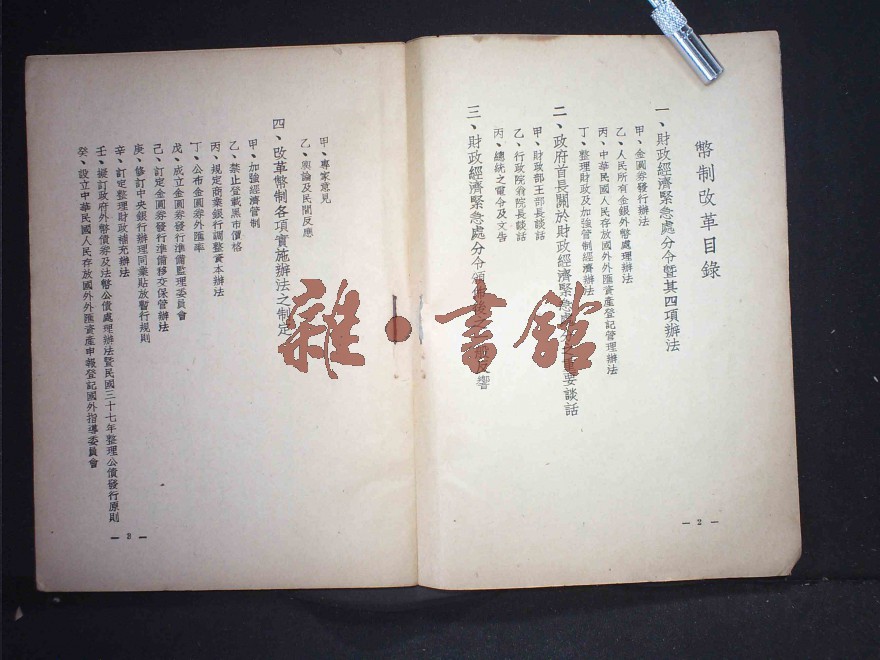 幣制改革目錄
一、財政經濟緊急處分令暨其四項辦法
甲、金圓券發行辦法
乙、人民所有金銀外幣處理辦法
丙、中華民國人民存放國外外匯資產登記管理辦法
丁、整理財政及加強管制經濟辦法
二、政府首長關於財政經濟緊急處分之重要談話
甲、財政部王部長談話
乙、行政院翁院長談話
丙、總統之電令及文告
三、財政經濟緊急處分令頒佈後之反響
— 2 —
甲、專家意見
乙、輿論及民間反應
四、改革幣制各項實施辦法之制定
甲、加強經濟管制
乙、禁止登載黑市價格
丙、規定商業銀行調整資本辦法
丁、公布金圓券外匯率
戊、成立金圓券發行準備監理委員會
己、訂定金圓券發行準備移交保管辦法
庚、修訂中央銀行辦理同業貼放暫行規則
辛、訂定整理財政補充辦法
壬、擬訂政府外幣債券及法幣公債處理辦法暨民國三十七年整理公債發行原則
癸、設立中華民國人民存放國外外匯資產申報登記國外指導委員會
— 3 —
雜·書館